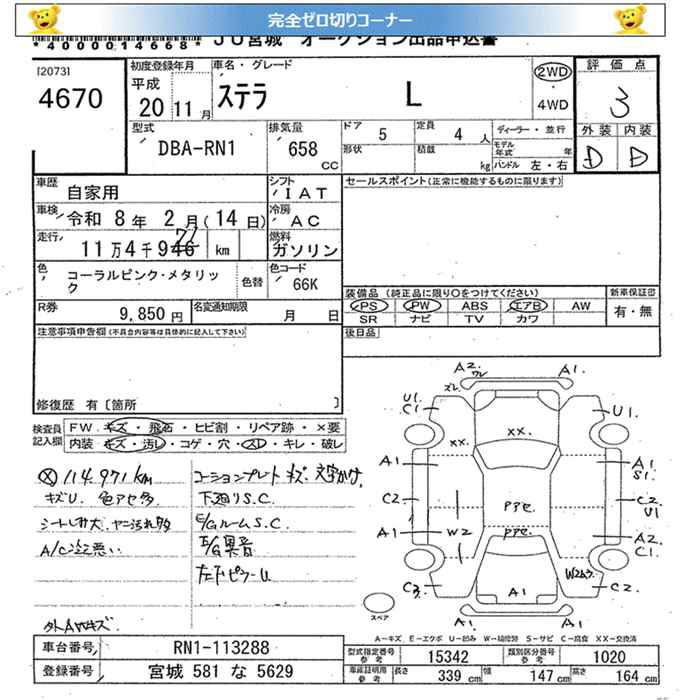 完全ゼロ切りコーナー
*40000014668* JU宮城 オークション出品申込書
[2073]
4670
初度登録年月
平成
20 11月
車名・グレード
ステラ L
2WD
4WD
評価点
3
外装 内装
D D
型式
DBA-RN1
排気量
658 CC
ドア 5
定員 4 人
形状
積載 kg
ディーラー・並行
モデル年式 年
ハンドル 左・右
車歴 自家用
シフト IAT
車検 令和 8年 2月(14日)
冷房 AC
走行 11万4千946 71 km
燃料 ガソリン
色 コーラルピンク・メタリック
色替
色コード 66K
R券 9,850円
名変通知期限 月 日
セールスポイント(正常に機能するものに限ります)
装備品(純正品に限り○をつけてください)
新車保証書
PS PW ABS エアB AW
SR ナビ TV カワ
有・無
後日品
注意事項申告欄(不具合内容等は具体的に記入して下さい)
修復歴 有〔箇所 〕
検査員記入欄
FW キズ・飛石・ヒビ割・リペア跡・×要
内装 キズ・汚レ・コゲ・穴・スレ・キレ・破レ
114,971km
キズU. 色アセ多
シートしみ大、ヤニ汚れ多
A/C冷悪い
外AWキズ
コーションプレートキズ、文字かけ
下廻りS.C.
E/GルームS.C.
E/G異音
左FピラーU
A2. ワレ A1.
ズレ
U1. C1 U1.
XX. XX.
A1 A1. S1.
C2 C2 U1
PアセPアセ
A1 W2 A2. C1.
W2ムラ
C3 A1 C2
A1. A1.
スペア
A-キズ E-エクボ U-凹み W-補修跡 S-サビ C-腐食 XX-交換済
車台番号 RN1-113288
登録番号 宮城 581 な 5629
型式指定番号 参考 15342
類別区分番号 参考 1020
車庫証明用 参考 長さ 339 cm 幅 147 cm 高さ 164 cm